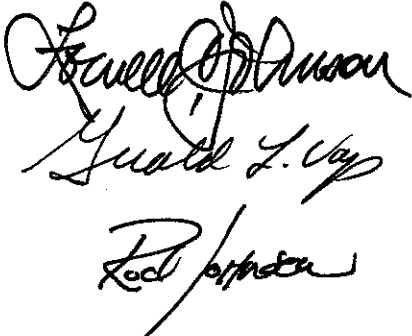 Lowell J. Johnson
Gerald L. Voy
Rod Johnson